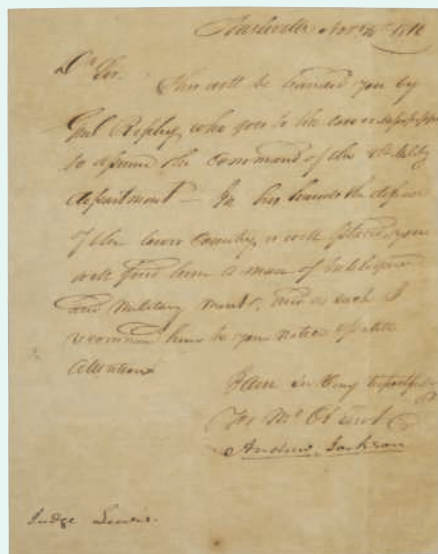 Nashville Novr 16th 1816
Dr Sir.
This will be handed you by
Genl Ripley, who goes to
to assume the command of the 8th Military
department — In his hands the defence
of the lower Country is well placed, you
will find him a man of intelligence
and military merit, and as such I
recommend him to your notice & polite
attention
I am Sir Very respectfully
Yr Mo Ob Servt
Andrew Jackson
Judge Lewis.